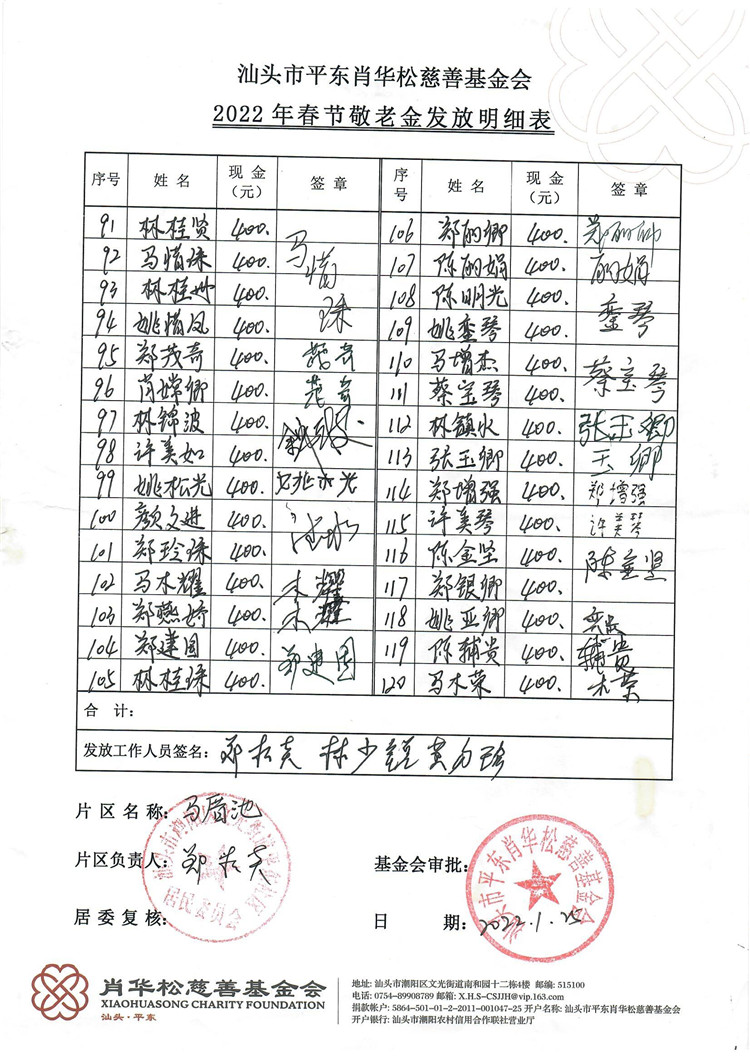 汕头市平东肖华松慈善基金会
2022年春节敬老金发放明细表
序号 姓名 现金(元) 签章 序号 姓名 现金(元) 签章
91 林桂贤 400. 106 郑丽卿 400. 郑丽卿
92 马惜珠 400. 马惜珠 107 陈丽娟 400. 丽娟
93 林桂妙 400. 108 陈明光 400.
94 姚惜凤 400. 109 姚銮琴 400. 銮琴
95 郑茂奇 400. 茂奇 110 马增杰 400.
96 肖嫦卿 400. 茂奇 111 蔡宝琴 400. 蔡宝琴
97 林锦波 400. 112 林镇水 400. 张玉卿
98 许美如 400. 113 张玉卿 400. 玉卿
99 姚松光 400. 姚松光 114 郑增强 400. 郑增强
100 颜文进 400. 115 许美琴 400. 许美琴
101 郑玲珠 400. 116 陈金坚 400. 陈金坚
102 马木耀 400. 木耀 117 郑银卿 400.
103 郑燕娇 400. 木耀 118 姚亚卿 400.
104 郑建国 400. 郑建国 119 陈辅贵 400. 辅贵
105 林桂珠 400. 120 马木荣 400. 木荣
合计:
发放工作人员签名:
片区名称: 马厝池
片区负责人:
基金会审批:
汕头市平东肖华松慈善基金会
居委复核:
居民委员会
日期: 2022.1.25
肖华松慈善基金会
XIAOHUASONG CHARITY FOUNDATION
汕头·平东
地址: 汕头市潮阳区文光街道南和园十二栋4楼 邮编: 515100
电话: 0754-89908789 邮箱: X.H.S-CSJJH@vip.163.com
捐款帐户: 5864-501-01-2-2011-001047-25 开户名称: 汕头市平东肖华松慈善基金会
开户银行: 汕头市潮阳农村信用合作联社营业厅